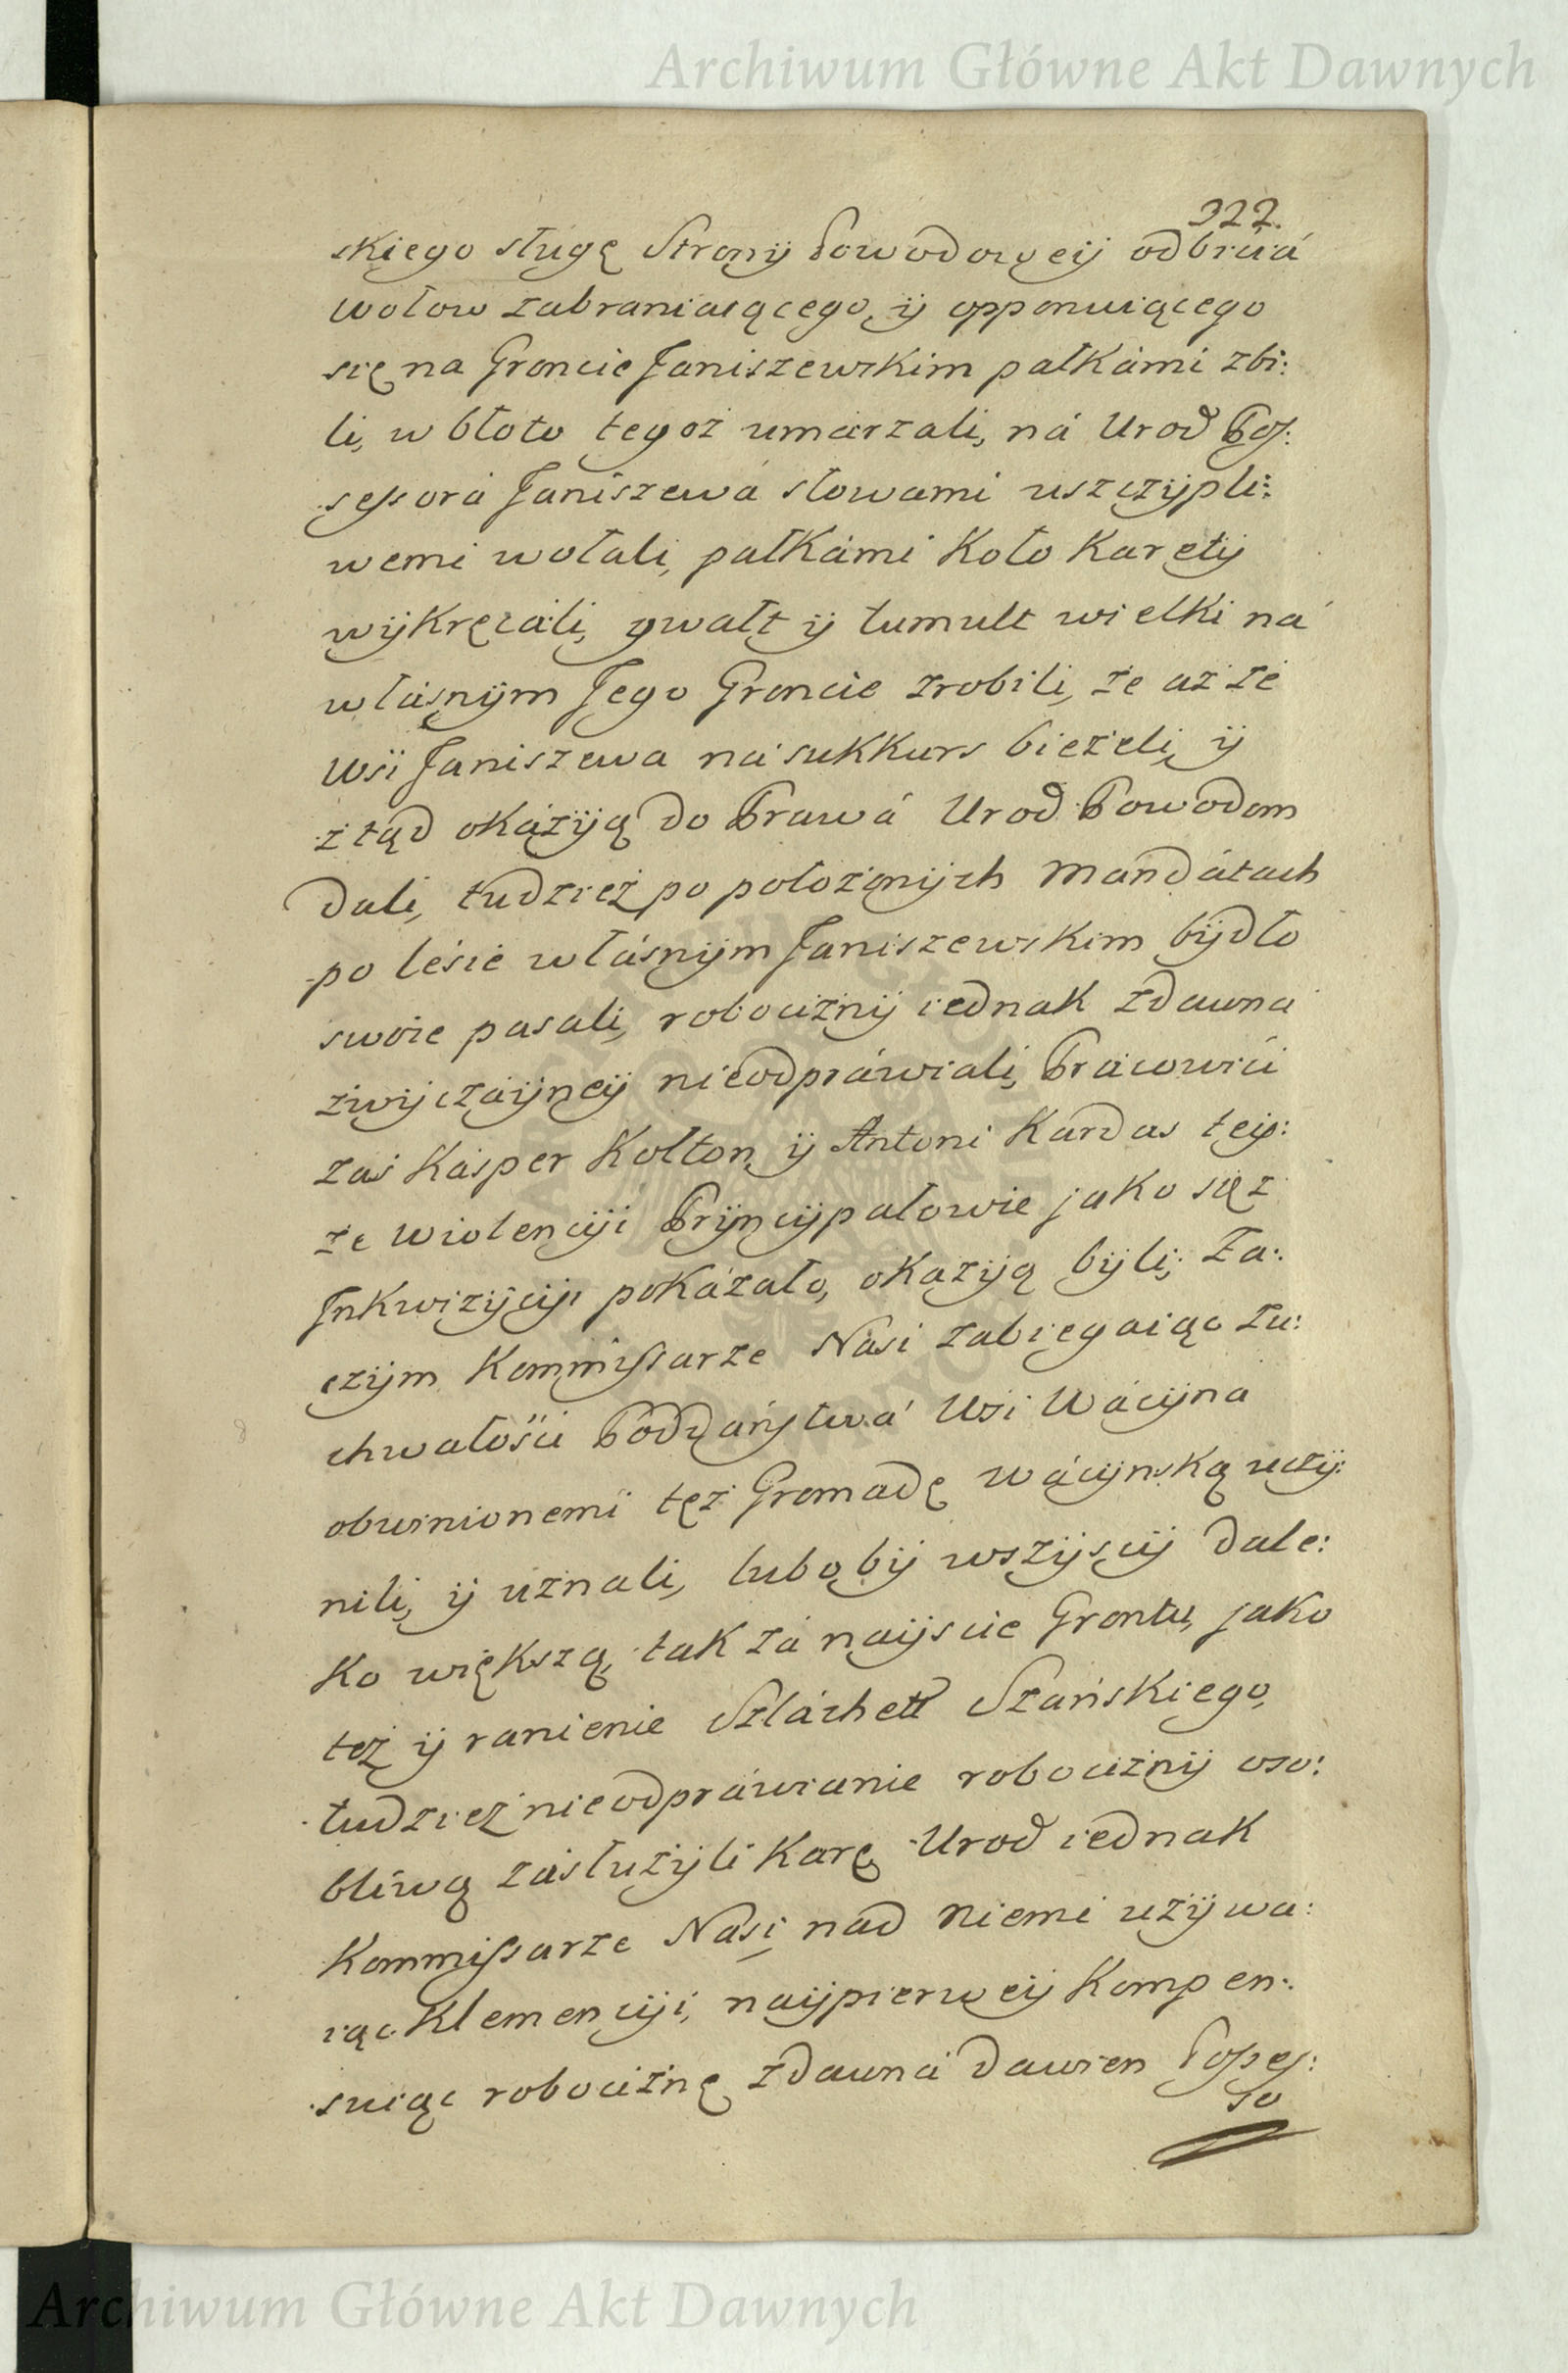 Archiwum Główne Akt Dawnych
322.
skiego sługę Strony Powodowey odbiciá
wołow zabraniaiącego, y opponuiącego
się na Gruncie Janiszewskim pałkámi zbi:
li, w błoto tegoż umárzali, ná Urod Pos:
sessorá Janiszewá słowami uszczypli:
wemi wołali, pałkámi koło karety
wykręcáli, gwałt y tumult wielki ná
własnym Jego Gruncie zrobili, że aż ze
Wsi Janiszewa ná sukkurs bieżeli, y
ztąd okázyą do Prawá Urod Powodom
dali, tudzież po położonych Mandátach
po lesie własnym Janiszewskim bydło
swoie pasali, robocizny iednak zdawna
zwyczáyney nieodpráwiali, Prácowici
zaś Kásper Kołton, y Antoni Kardas tey:
że wiolencyi Pryncypałowie jako się z
Inkwizycyi pokázało, okazyą byli; Za:
czym Kommissarze Nasi zabiegaiąc zu:
chwałości Poddáństwá Wsi Wácyna
obwinionemi też Gromadę Wácynską uczy:
nili, y uznali, lubo by wszyscy dale:
ko większą, tak zá nayscie Gruntu, jako
też y ranienie Szláchett Szańskiego,
tudzież nieodpráwianie robocizny oso:
bliwą zásłużyli karę Urod iednak
Kommissarze Nasi nad niemi używa:
iąc Klemencyi, naypierwey kompen:
suiąc robociznę zdawná dawien Posses:
so
Archiwum Główne Akt Dawnych